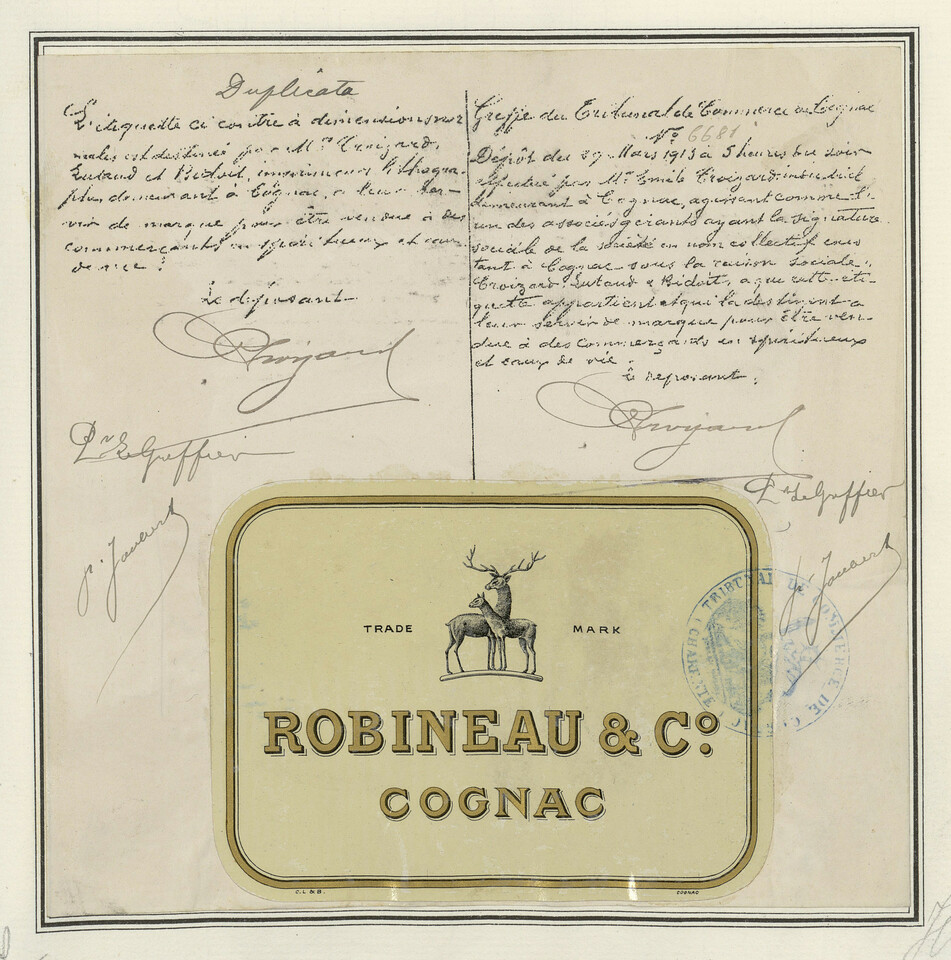 Duplicata
L'étiquette ci contre à dimensions nor
males est destinée par Mrs Croizard,
Lutaud et Bidoit, imprimeurs lithogra-
phes demeurant à Cognac, à leur ser-
vir de marque pour être vendue à des
commerçants en spiritueux et eaux
de vie.
Le déposant
Croizard
Pr Le Greffier
Greffe du Tribunal de Commerce de Cognac
No 6681
Dépôt du 29 Mars 1913 à 5 heures du soir
effectué par Mr Emile Croizard industriel
demeurant à Cognac, agissant comme l'
un des associés gérants ayant la signature
sociale de la société en nom collectif exis
tant à Cognac sous la raison sociale,
Croizard Lutaud & Bidoit, à qui cette éti-
quette appartient et qui la destinent à
leur servir de marque pour être ven-
due à des commerçants en spiritueux
et eaux de vie.
Le déposant
Croizard
Pr Le Greffier
TRADE MARK
ROBINEAU & Co.
COGNAC
C. L & B. COGNAC
TRIBUNAL DE COMMERCE DE (CHARENTE)